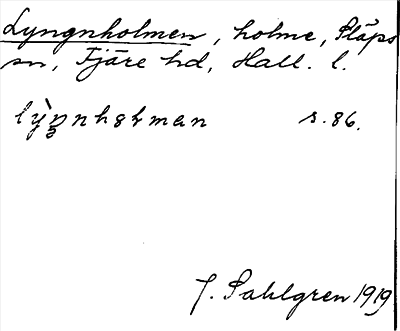 Lyngnholmen, holme, Släps
sn, Fjäre hd, Hall. l.
s. 86.
J. Sahlgren 1919